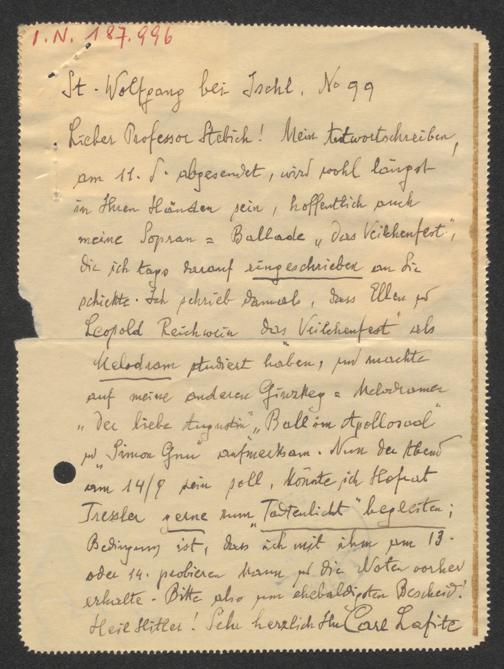 I.N. 187.996
St. Wolfgang bei Ischl. No 99
Lieber Professor Stebich! Mein Antwortschreiben,
am 11. d. abgesendet, wird wohl längst
in Ihren Händen sein, hoffentlich auch
meine Sopran = Ballade „Das Veilchenfest",
die ich tags darauf eingeschrieben an Sie
schickte. Ich schrieb damals, dass Ellen u
Leopold Reichwein das Veilchenfest" als
Melodram studiert haben, und machte
auf meine anderen Ginzkey = Melodramen
„Der liebe Augustin", „Ball im Apollosaal"
u „Simon Gnu" aufmerksam. Nun der Abend
am 14/9 sein soll, könnte ich Hofrat
Tressler gerne zum „Totenlicht" begleiten;
Bedingung ist, dass ich mit ihm am 13.
oder 14. probieren kann u die Noten vorher
erhalte. Bitte also um ehebaldigsten Bescheid!
Heil Hitler! Sehr herzlich Ihr Carl Lafite